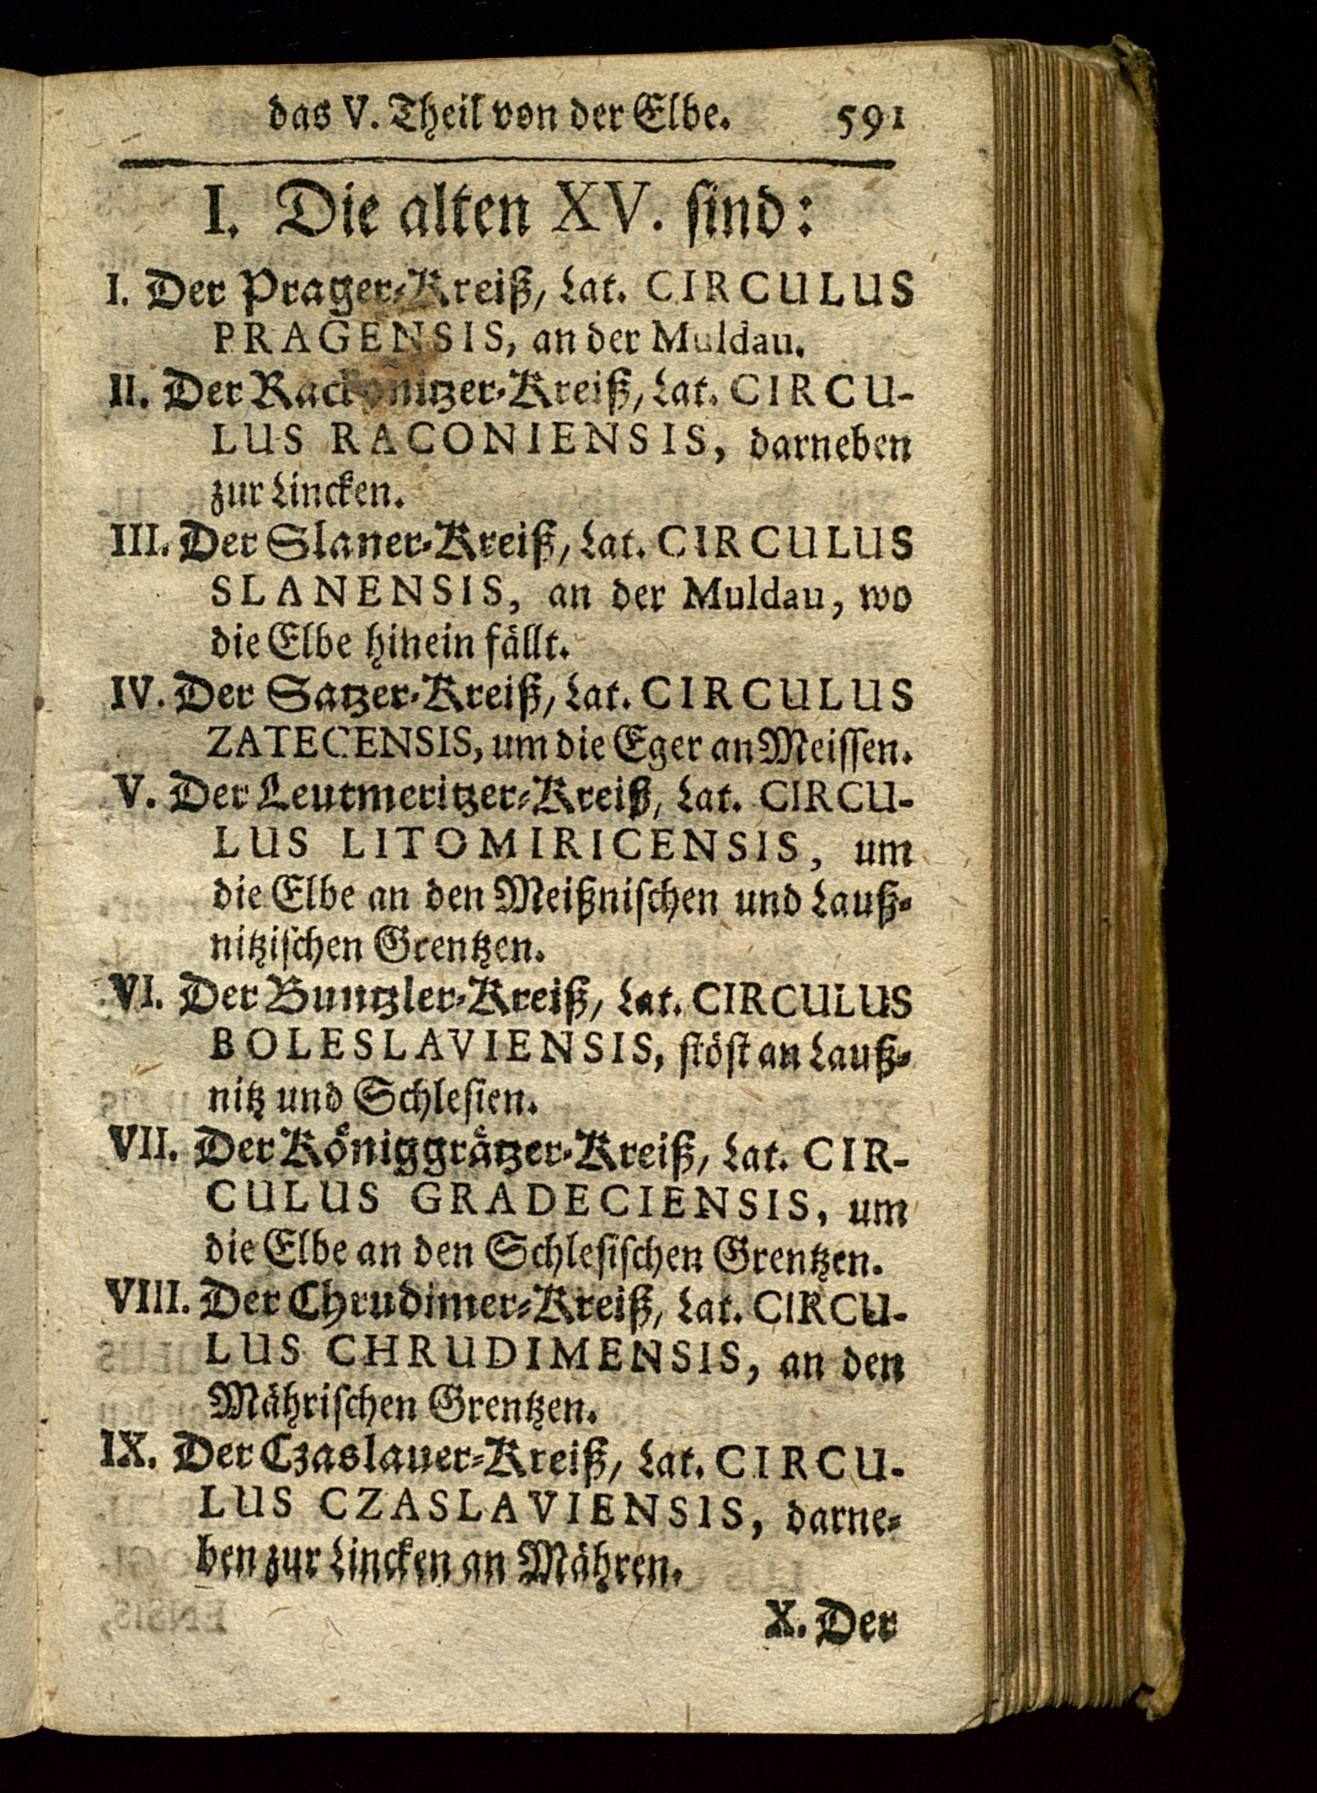 das V. Theil von der Elbe. 591
I. Die alten XV. sind:
I. Der Prager-Kreiß, Lat. CIRCULUS
PRAGENSIS, an der Muldau.
II. Der Rackonitzer-Kreiß, Lat. CIRCU-
LUS RACONIENSIS, darneben
zur Lincken.
III. Der Slaner-Kreiß, Lat. CIRCULUS
SLANENSIS, an der Muldau, wo
die Elbe hinein fällt.
IV. Der Satzer-Kreiß, Lat. CIRCULUS
ZATECENSIS, um die Eger an Meissen.
V. Der Leutmeritzer-Kreiß, Lat. CIRCU-
LUS LITOMIRICENSIS, um
die Elbe an den Meißnischen und Lauß-
nitzischen Grentzen.
VI. Der Buntzler-Kreiß, Lat. CIRCULUS
BOLESLAVIENSIS, stöst an Lauß-
nitz und Schlesien.
VII. Der Königgrätzer-Kreiß, Lat. CIR-
CULUS GRADECIENSIS, um
die Elbe an den Schlesischen Grentzen.
VIII. Der Chrudimer-Kreiß, Lat. CIRCU-
LUS CHRUDIMENSIS, an den
Mährischen Grentzen.
IX. Der Czaslauer-Kreiß, Lat. CIRCU-
LUS CZASLAVIENSIS, darne-
ben zur Lincken an Mähren.
X. Der